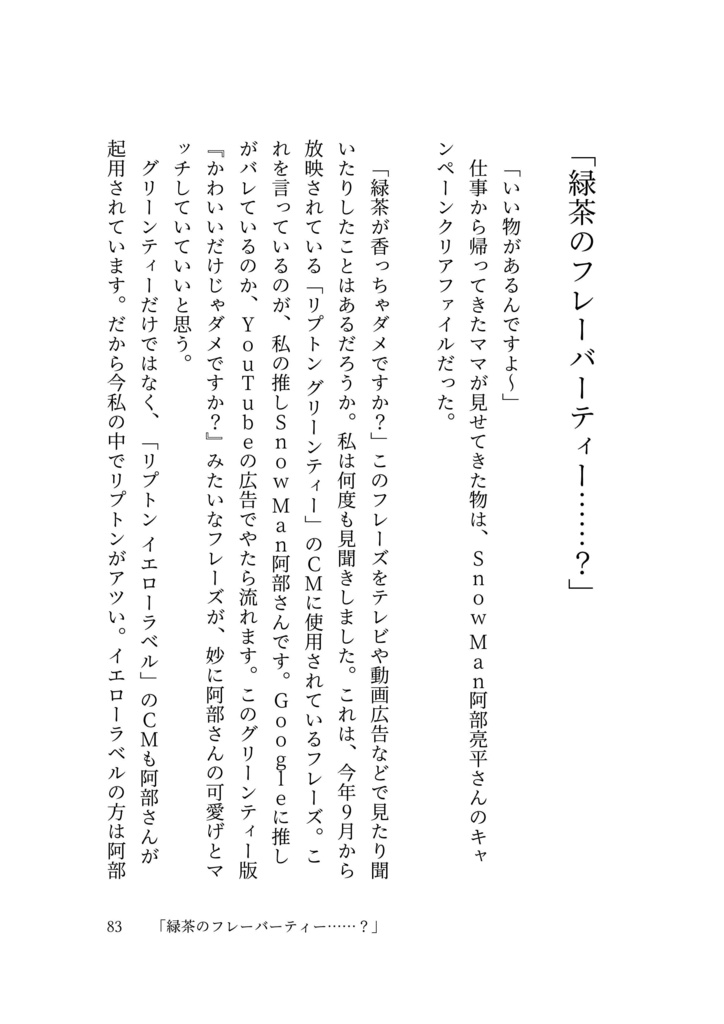 「緑茶のフレーバーティー……？」
「いい物があるんですよ〜」
仕事から帰ってきたママが見せてきた物は、ＳｎｏｗＭａｎ阿部亮平さんのキャ
ンペーンクリアファイルだった。
「緑茶が香っちゃダメですか？」このフレーズをテレビや動画広告などで見たり聞
いたりしたことはあるだろうか。私は何度も見聞きしました。これは、今年９月から
放映されている「リプトン グリーンティー」のＣＭに使用されているフレーズ。こ
れを言っているのが、私の推しＳｎｏｗＭａｎ阿部さんです。Ｇｏｏｇｌｅに推し
がバレているのか、ＹｏｕＴｕｂｅの広告でやたら流れます。このグリーンティー版
『かわいいだけじゃダメですか？』みたいなフレーズが、妙に阿部さんの可愛げとマ
ッチしていていいと思う。
グリーンティーだけではなく、「リプトン イエローラベル」のＣＭも阿部さんが
起用されています。だから今私の中でリプトンがアツい。イエローラベルの方は阿部
83 「緑茶のフレーバーティー……？」